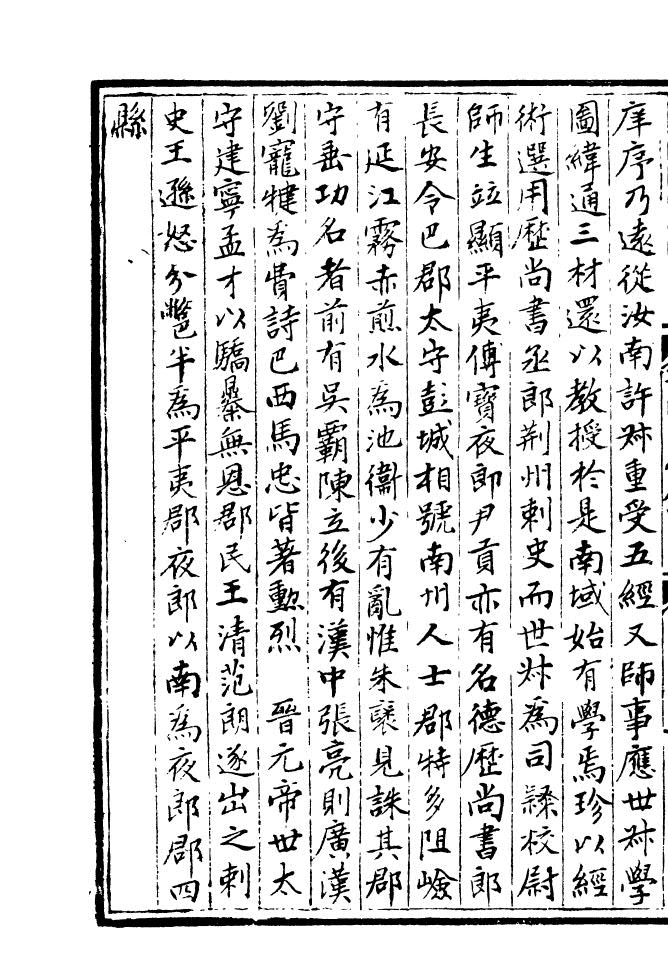 庠序乃遠從汝南許叔重受五經又師事應世叔學
圖緯通三材還以教授於是南域始有學焉珍以經
術選用歷尚書丞郎荆州刺史而世叔為司隸校尉
師生竝顯平夷傅寶夜郎尹貢亦有名德歷尚書郎
長安令巴郡太守彭城相號南州人士郡特多阻嶮
有延江霧赤煎水為池衞少有亂惟朱襃見誅其郡
守垂功名者前有吳霸陳立後有漢中張亮則廣漢
劉寵犍為費詩巴西馬忠皆著勲烈　晉元帝世太
守建寧孟才以驕暴無恩郡民王清范朗遂出之刺
史王遜怒分鼈半為平夷郡夜郎以南為夜郎郡四
縣